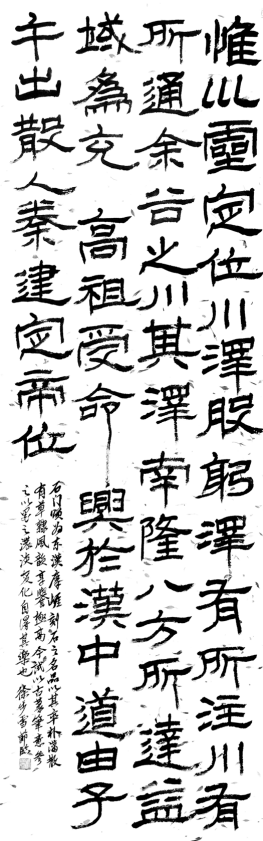 惟巛靈定位川澤股躬澤有所注川有
所通余谷之川其澤南隆八方所達益
域為充高祖受命興於漢中道由子
午出散入秦建定帝位
石门頌为东漢摩崖刻石之名品以其率朴蕭散
有草隸風韻享譽極高今試以古篆筆意參
之以墨之濃淡变化自得其樂也